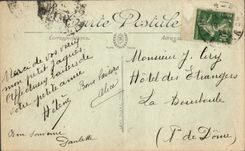 Carte Postale
Correspondance
Adresse
Merci de vos vœux
mon petit Jacques
Affectueux baisers de
votre petite amie
Hélène
Bons baisers
Alice
Bon souvenir
Paulette
Monsieur J.
Hôtel des Étrangers
La Bourboule
(P. de Dôme)